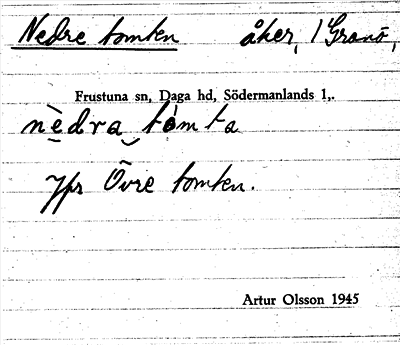 Nedre tomten åker, 1 Granö,
Frustuna sn, Daga hd, Södermanlands l,.
nèdra tòmta
Jfr Övre tomten.
Artur Olsson 1945